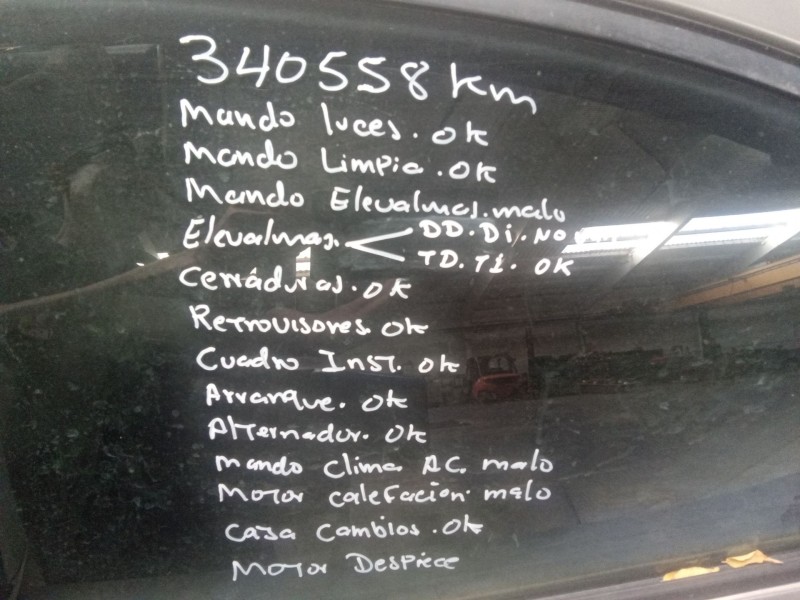 340558 km
Mando luces. ok
Mando Limpia. ok
Mando Elevalmas. malo
Elevalmas. < DD. Di. NO
TD. Ti. OK
Cerráduras. ok
Retrovisores. ok
Cuadro Inst. ok
Arranque. ok
Alternador. ok
mando clima. AC. malo
Motor calefacion. malo
Caja Cambios. ok
Motor Despiece